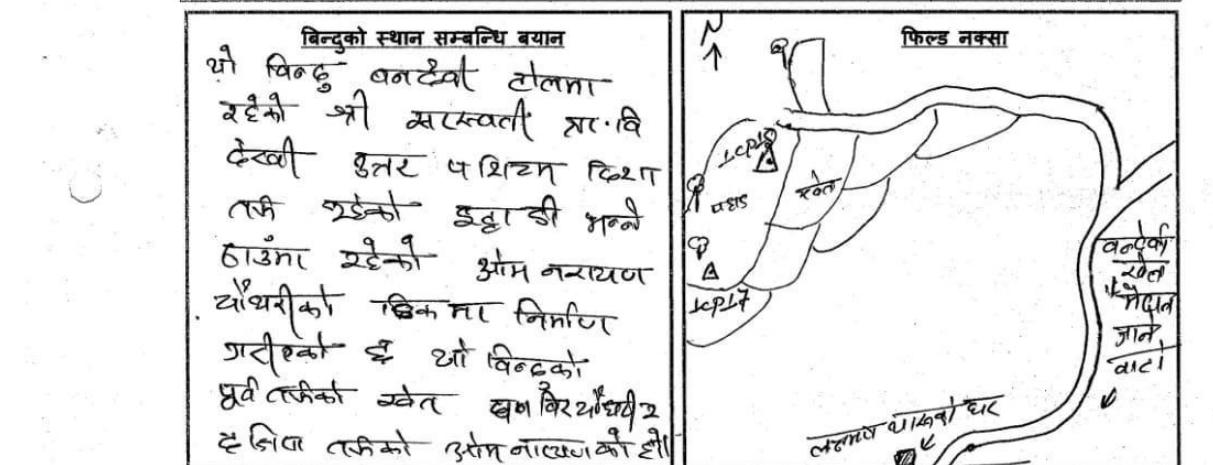 बिन्दुको स्थान सम्बन्धि बयान
यो विन्दु वनदेवी टोलमा
रहेको श्री सरस्वती प्रा.वि
देखी उत्तर पश्चिम दिशा
तर्फ रहेको इट्टा डी भन्ने
ठाउँमा रहेको ओम नरायण
चौधरीको डिकमा निर्माण
गरीएको छ यो विन्दुको
पूर्व तर्फको खेत चौधरी र
दक्षिण तर्फको ओम नारायणको हो।
फिल्ड नक्सा
N
1CP18
खेत
पहाड
1CP17
वनदेवी
खेल
मैदान
जाने
बाटो
थारुको घर